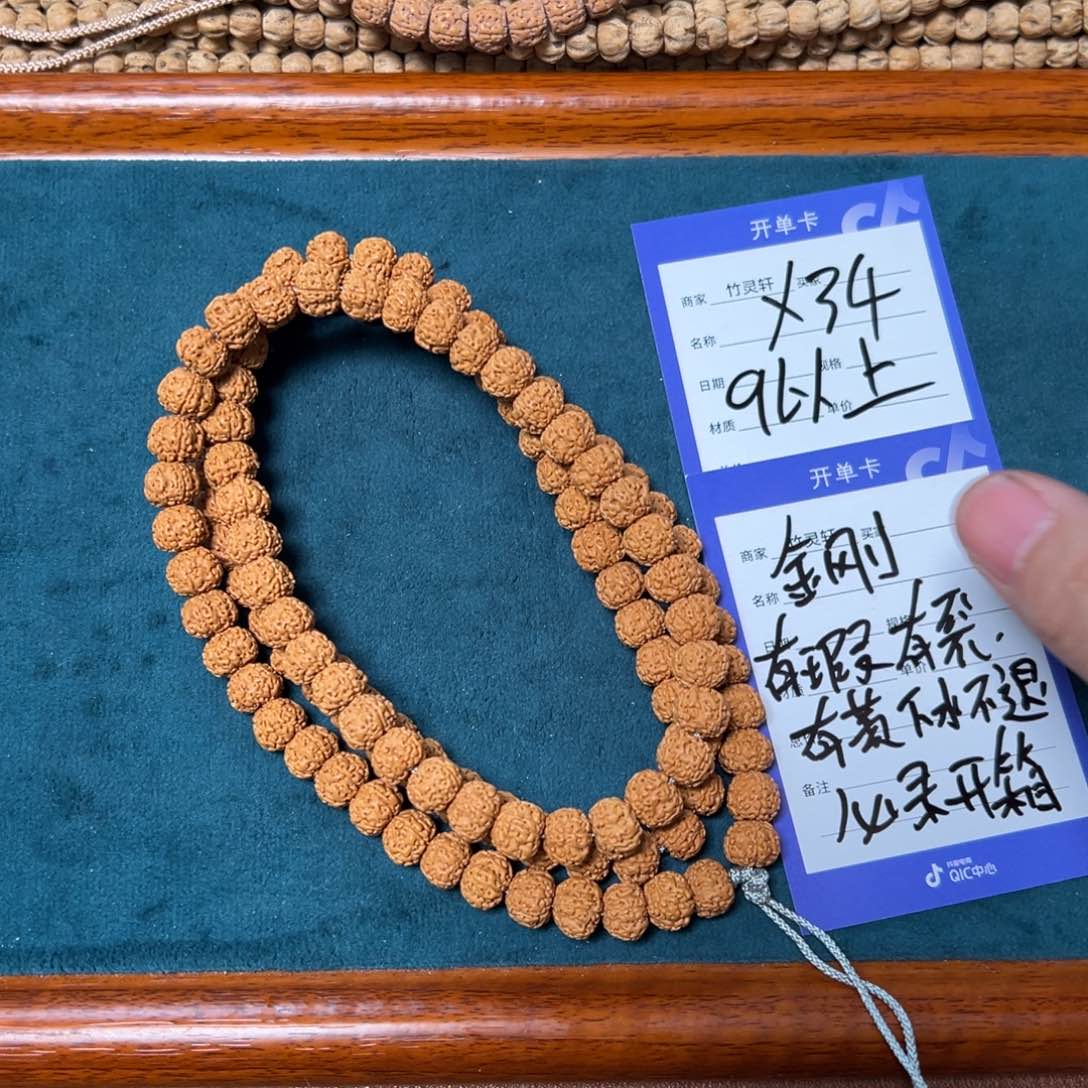 开单卡
商家 竹灵轩 买家
X34
名称
规格
日期
9以上
单价
材质
开单卡
商家 竹灵轩 买家
金刚
名称
有瑕有裂.
单价
有黄下水不退
备注
必录开箱
抖音电商
QIC中心